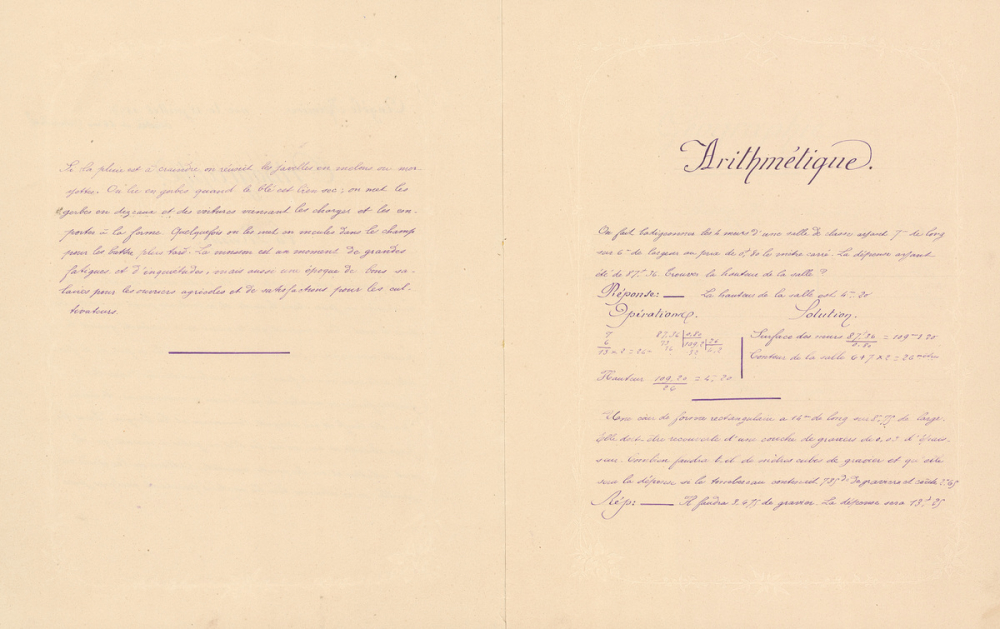 Si la pluie est à craindre on réunit les javelles en
pettes. On lie en gerbes quand le blé est bien sec ; on met les
gerbes en dizeaux et des voitures viennent les charger et les em-
porter à la ferme. Quelquefois on les met en meules dans le champ
pour les battre plus tard. La moisson est un moment de grandes
fatigues et d'inquiétudes, mais aussi une époque de bons sa-
laires pour les ouvriers agricoles et de satisfactions pour les cul-
tivateurs.
Arithmétique.
On fait badigeonner les 4 murs d'une salle de classe ayant 7m de long
sur 6m de largeur au prix de le mètre carré. La dépense ayant
été de 87f.36 Trouver la hauteur de la salle ?
Réponse: — La hauteur de la salle est 4m.20
Opérations. Solution.
7
6
13 × 2 = 26
87,36 | 0,80
109,2 | 26
4,2
Surface des murs 87f36 / 0.80 = 109m 20
Contour de la salle 6+7 × 2 = 26 mètres
Hauteur 109,20 / 26 = 4m.20
Une cour de forme rectangulaire a 14m de long sur de large.
Elle doit être recouverte d'une couche de graviers de d'épais.
seur. Combien faudra-t-il de mètres cubes de gravier et quelle
sera la dépense si le tombereau contenant de graviers et coûte
Rép: — Il faudra de gravier. La dépense sera